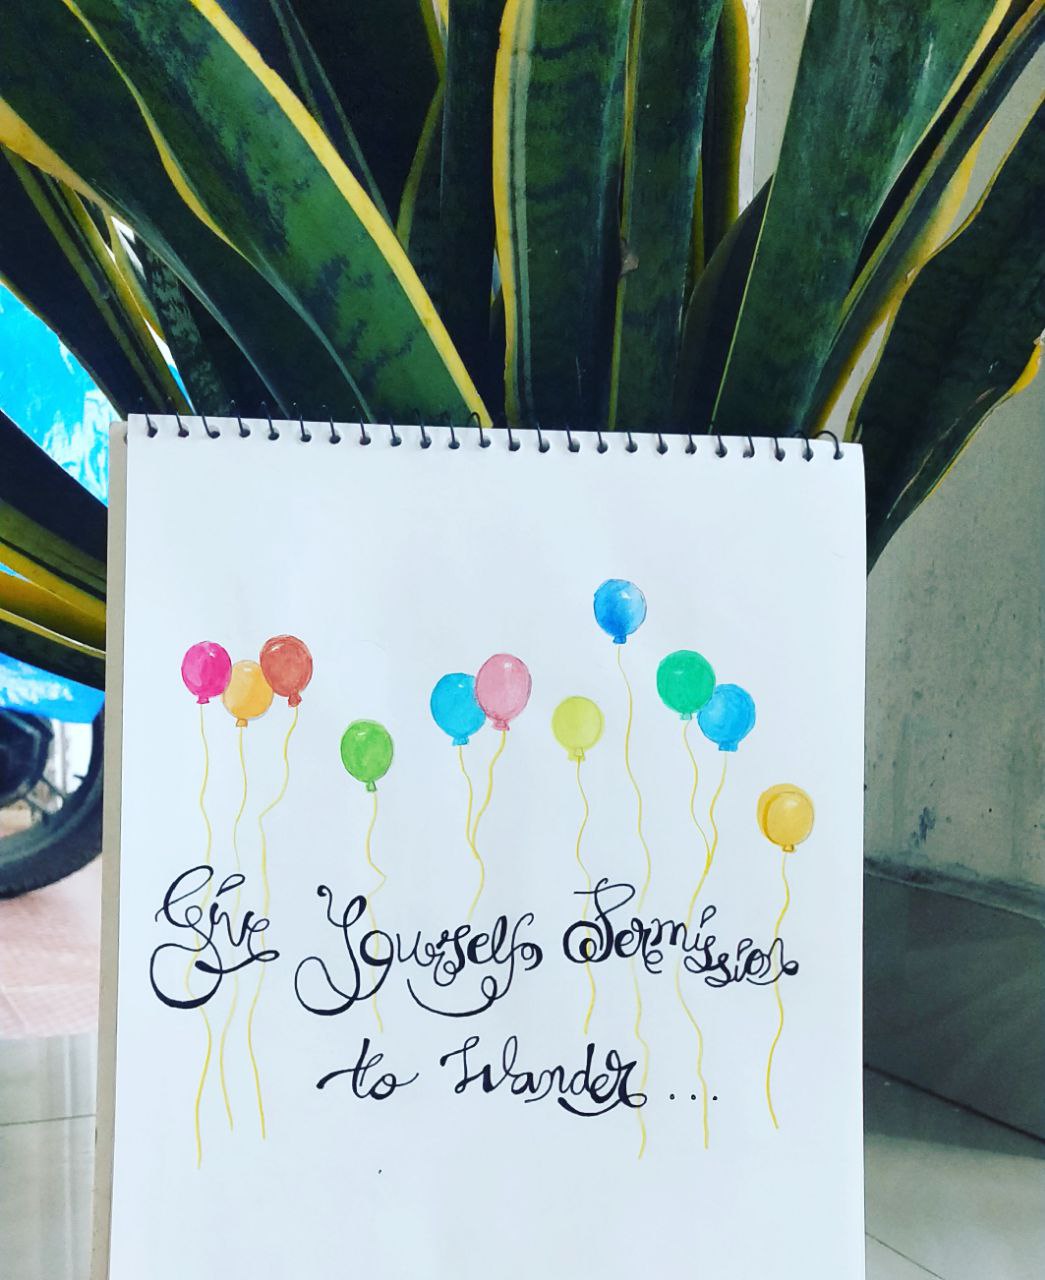 Give Yourself Permission
to Wander ...